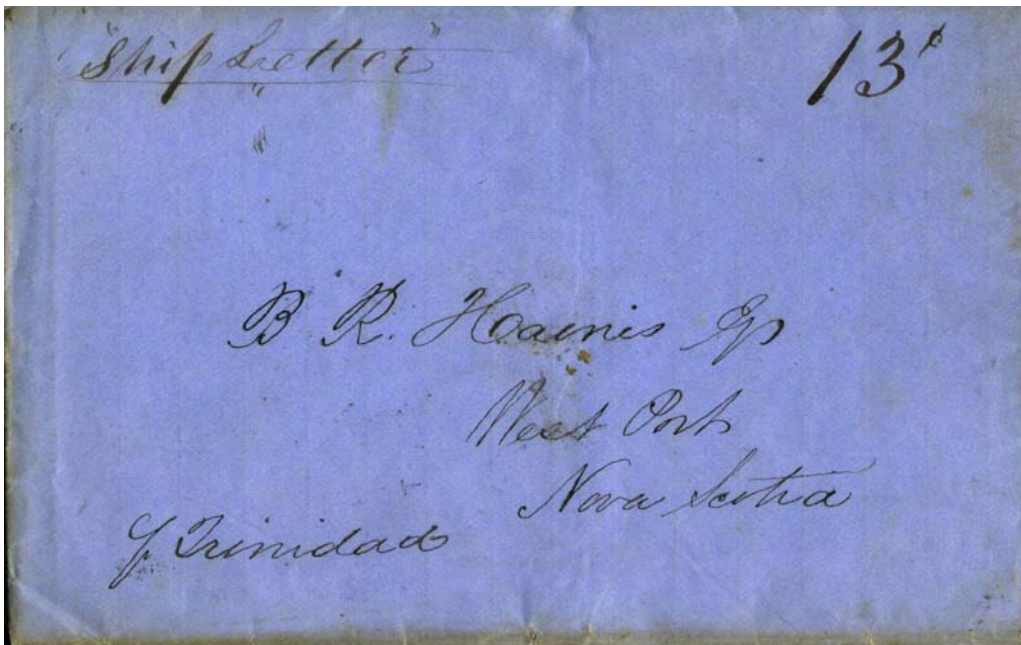 "Ship Letter"
13¢
B. R. Hainis Esq
West Port
Nova Scotia
p Trinidad